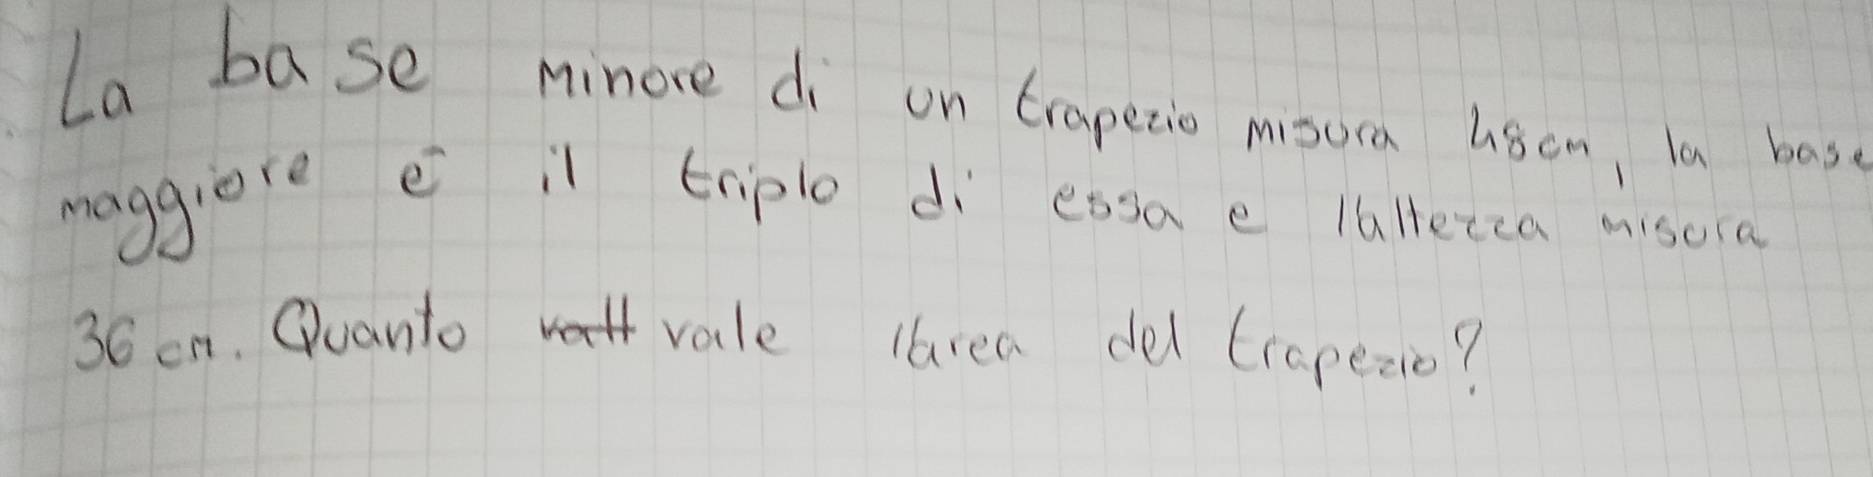 La base minore di un trapezio misura 48cm, la base
maggiore è il triplo di essa e l'altezza misura
36 cm. Quanto vale l'area del trapezio?